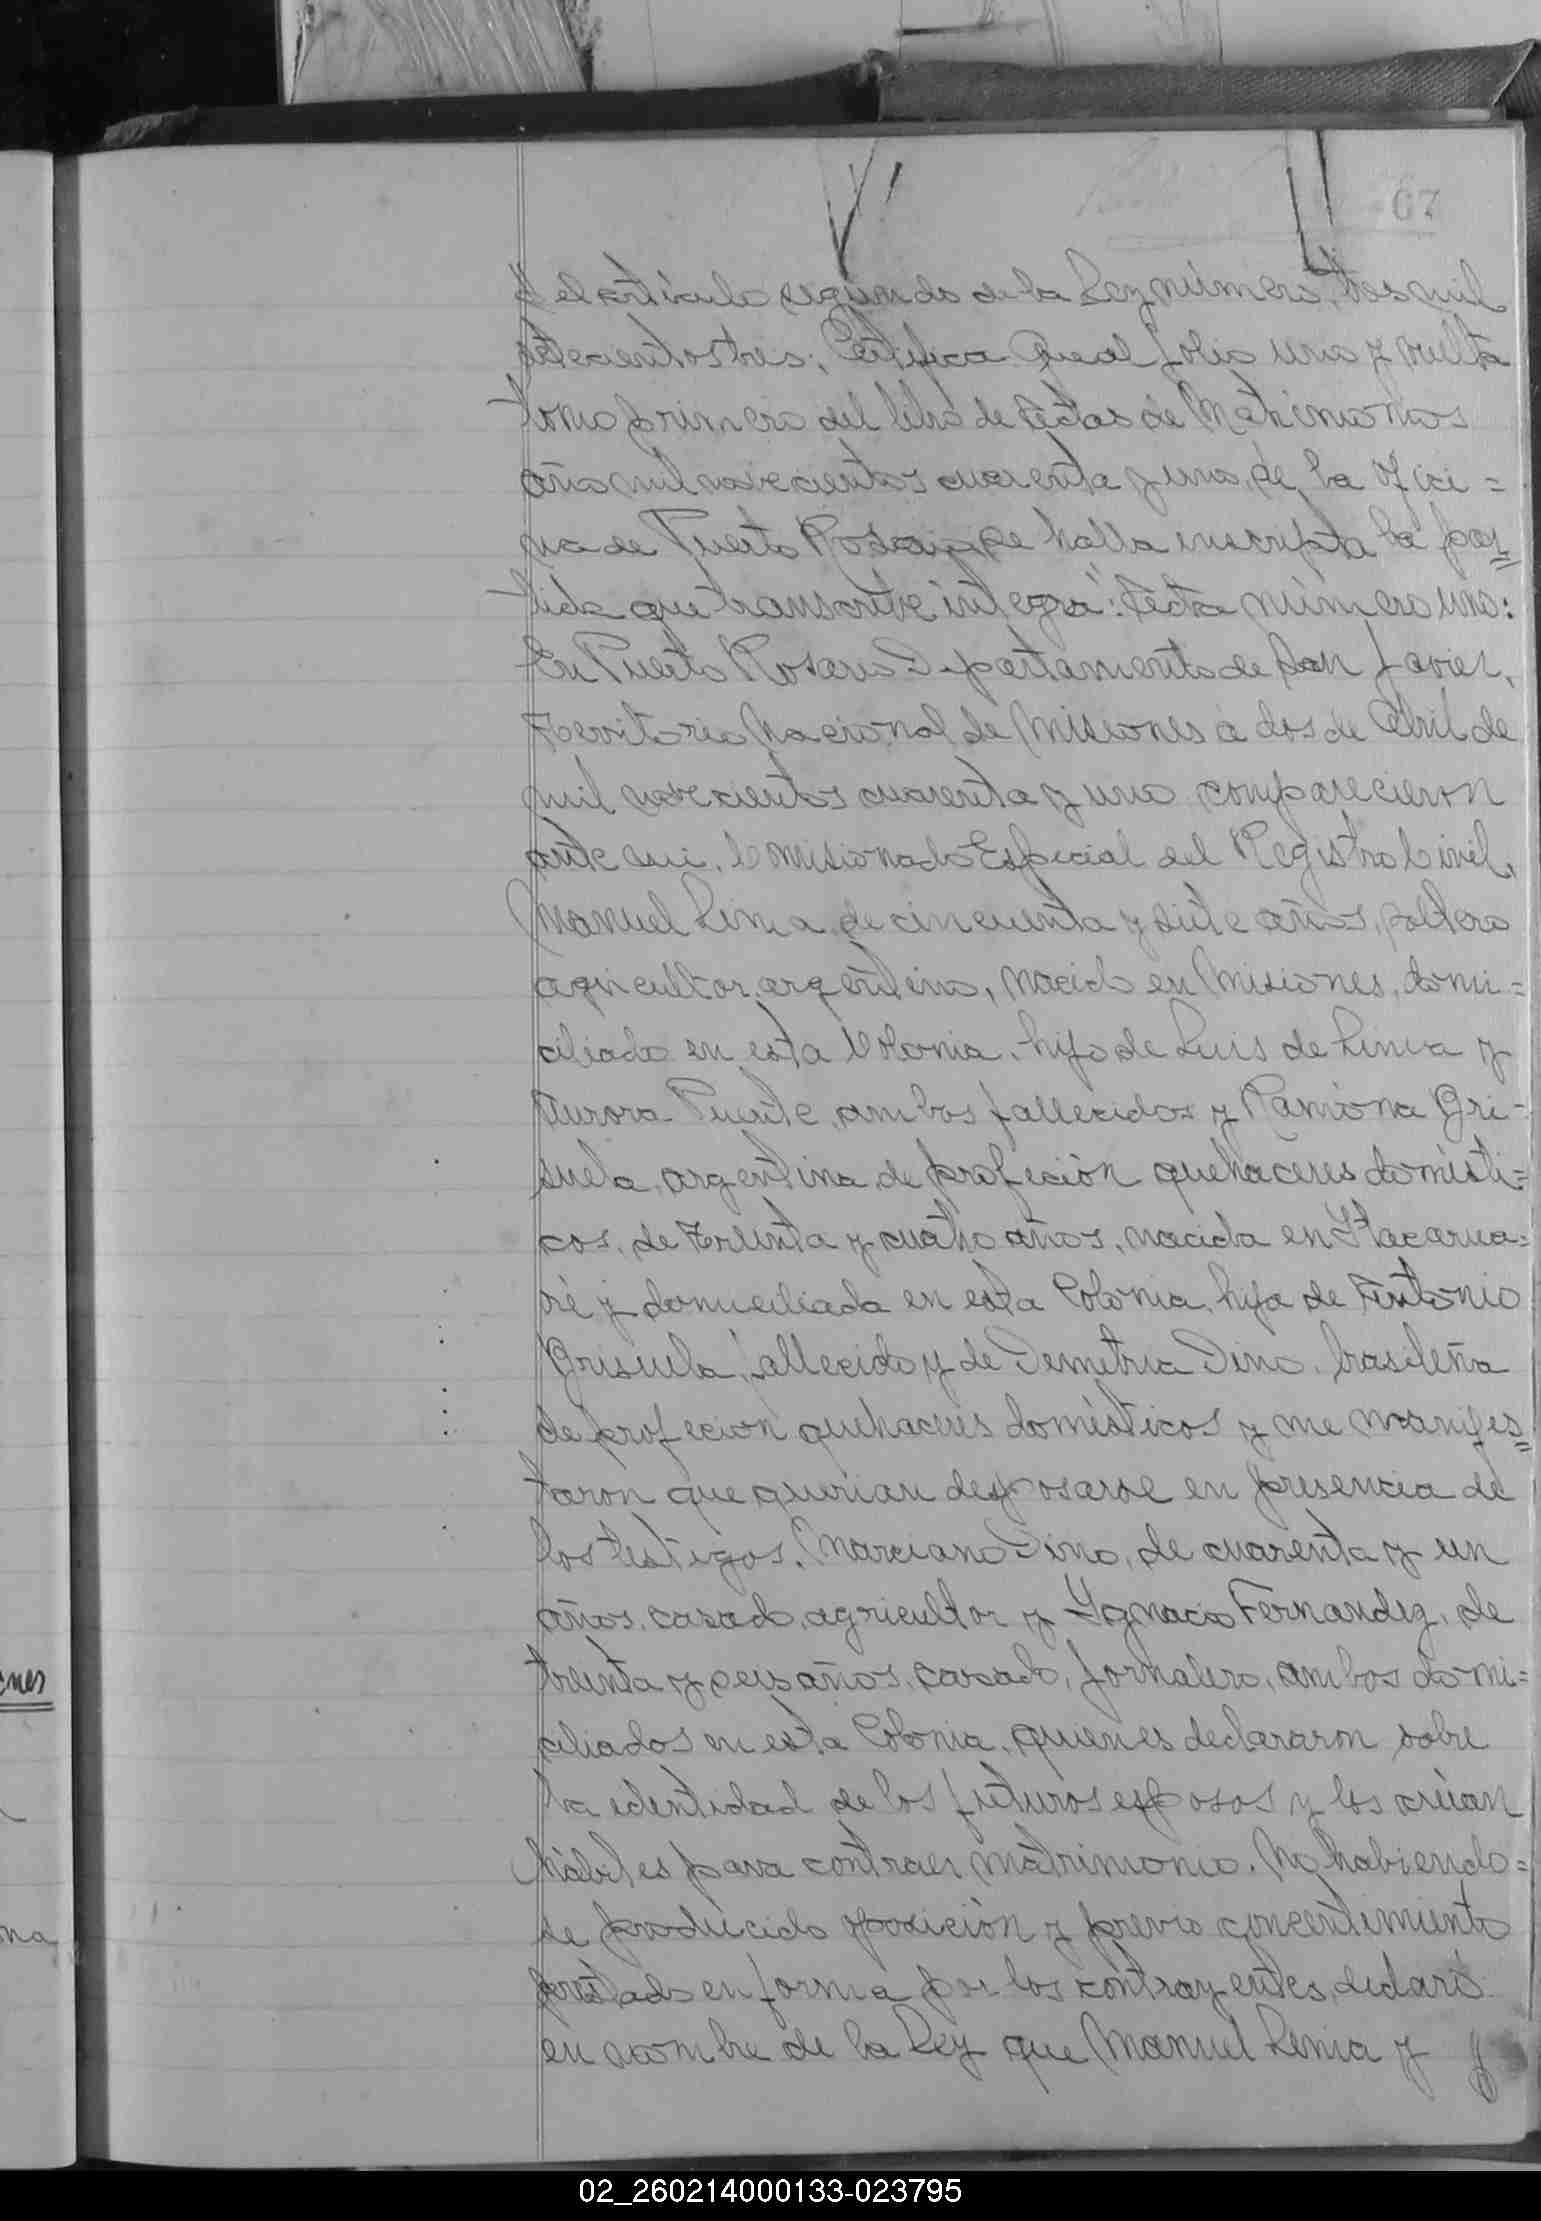 67
y el artículo segundo de la Ley número, tres mil
setecientos tres; Certifica Que al folio uno y vuelta
tomo primero del libro de Actas de Matrimonios
año mil novecientos cuarenta y uno, de la Ofici=
na de Puerto Rosario, se halla inscripta la par=
tida que transcribe integra": Acta número uno:
En Puerto Rosario Departamento de San Javier,
Territorio Nacional de Misiones a dos de Abril de
mil novecientos cuarenta y uno comparecieron
ante mi, Comisionado Especial del Registro Civil,
Manuel Lima, de cincuenta y siete años, soltero
agricultor, argentino, nacido en Misiones, domi=
ciliado en esta Colonia, hijo de Luis de Lima y
Aurora Puente, ambos fallecidos y Ramona Gri=
suela, argentina, de profeción quehaceres domésti=
cos, de treinta y cuatro años, nacida en Itacarua=
ré y domiciliada en esta Colonia, hija de Antonio
Grisuela, fallecido y de Demetria Dino, brasileña
de profecion quehaceres domésticos y me manifes=
taron que querian desposarse en presencia de
los testigos, Marciano Dino, de cuarenta y un
años, casado, agricultor y Ygnacio Fernandez, de
treinta y seis años, casado, jornalero, ambos domi=
ciliados en esta Colonia, quienes declararon sobre
la identidad de los futuros esposos y los creían
hábiles para contraer matrimonio. No habiendo=
se producido oposición y previo concentimiento
prestado en forma por los contrayentes, declaró
en nombre de la Ley que Manuel Lima y
ones
na
02_260214000133-023795